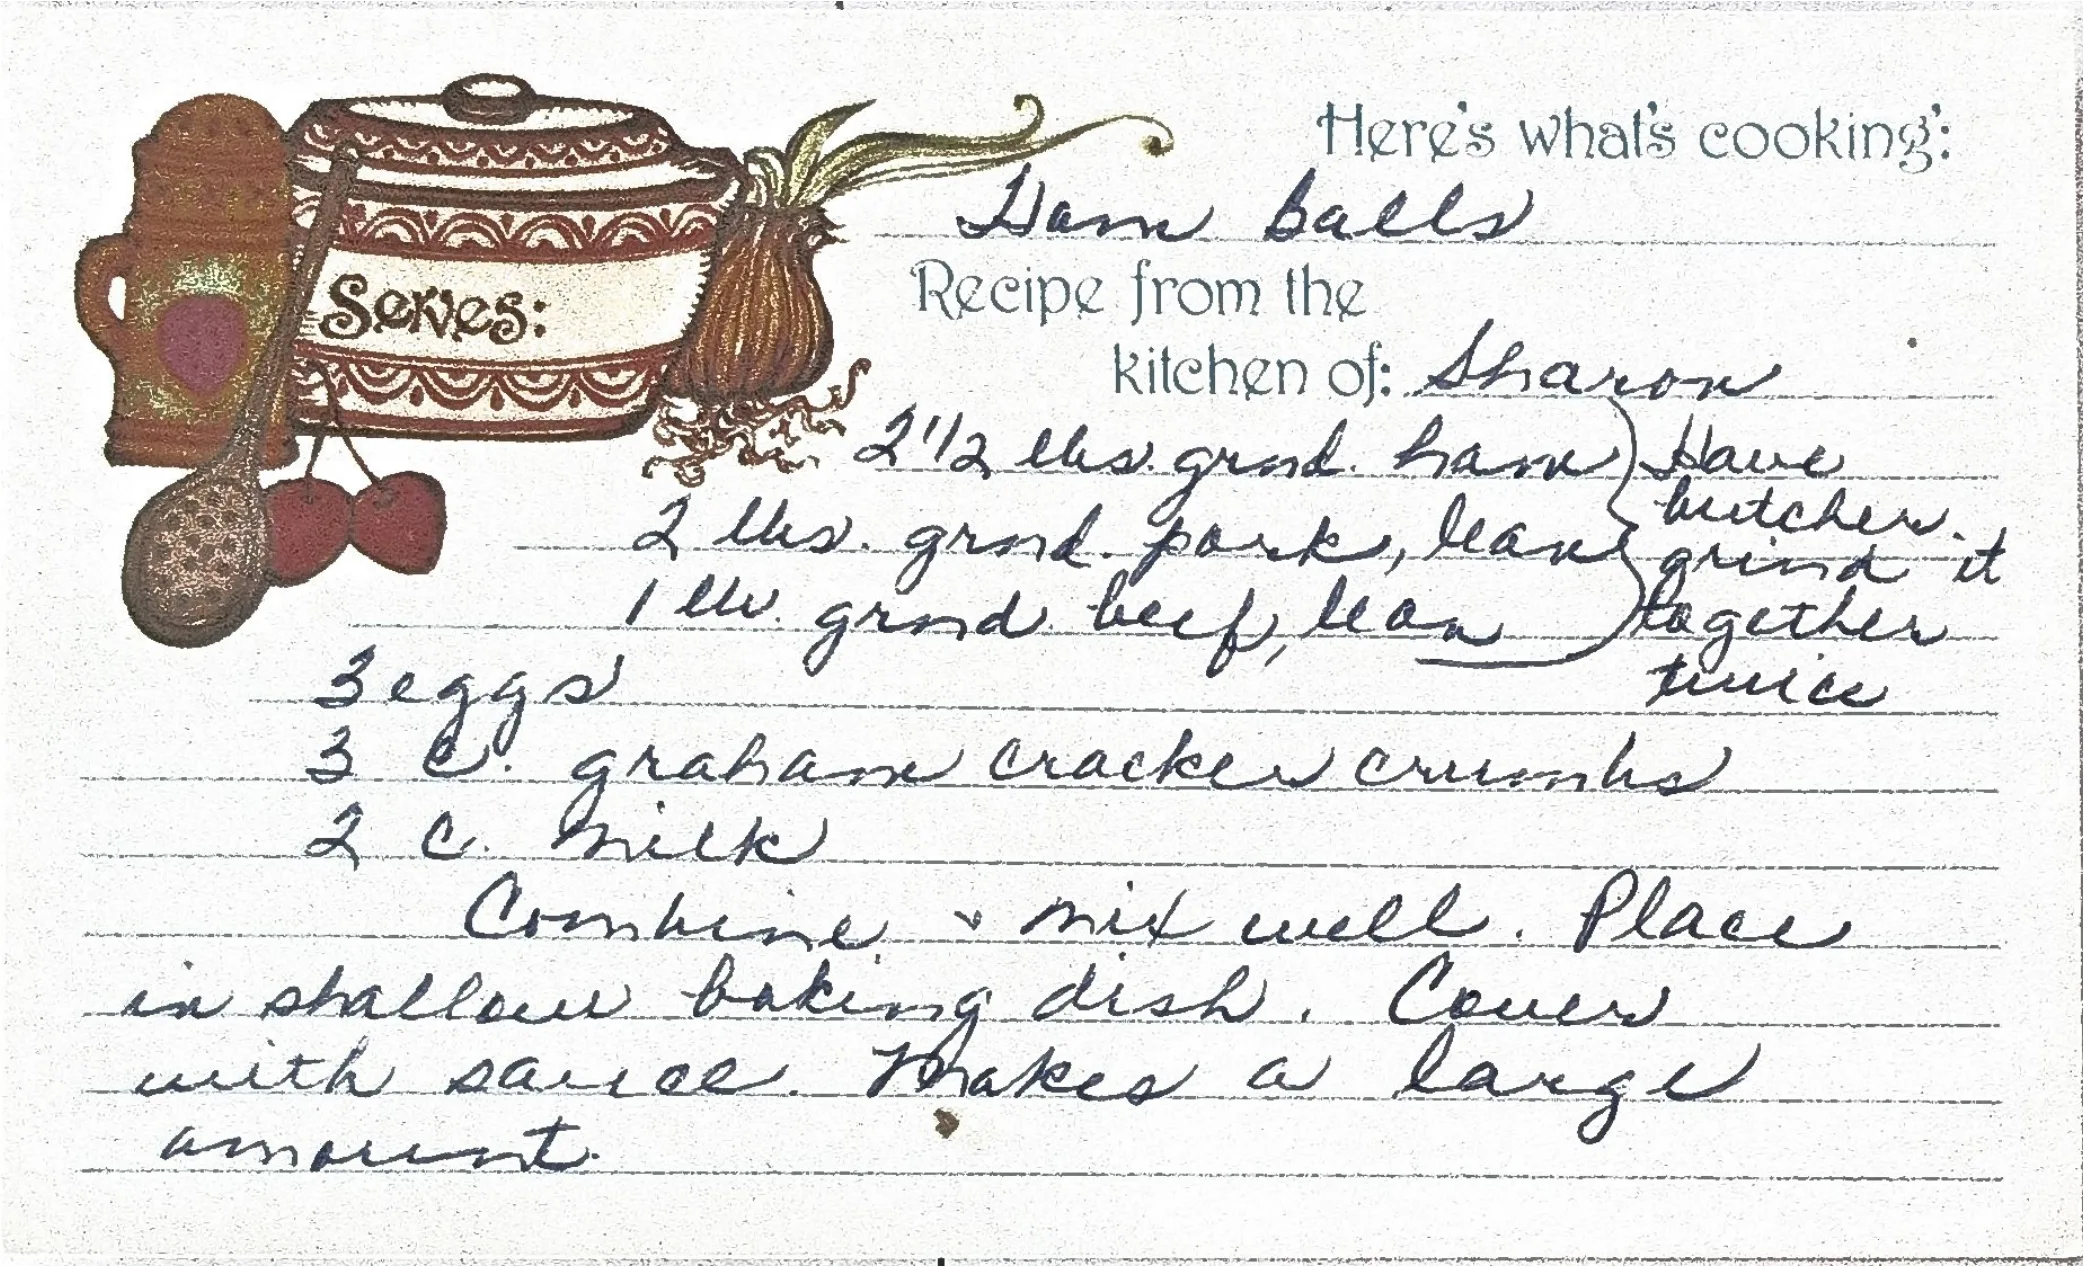 Here's what's cooking:
Ham Balls
Serves:
Recipe from the
kitchen of: Sharon
2 1/2 lbs. grnd. ham
2 lbs. grnd. pork, lean
1 lb. grnd. beef, lean
Have
butcher
grind it
together
twice
3 eggs
3 c. graham cracker crumbs
2 c. milk
Combine & mix well. Place
in shallow baking dish. Cover
with sauce. Makes a large
amount.